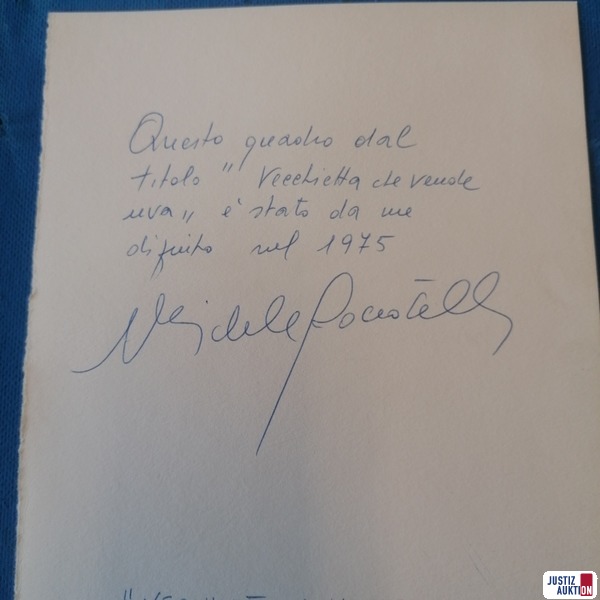 Questo quadro dal
titolo " Vecchietta che vende
uva " è stato da me
dipinto nel 1975
Michele
JUSTIZ
AUKTION